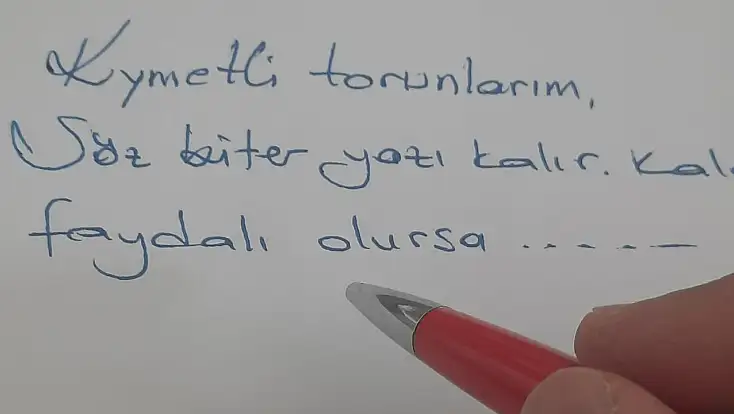 Kymetli torunlarım,
Söz biter yazı kalır. Kal
faydalı olursa ......